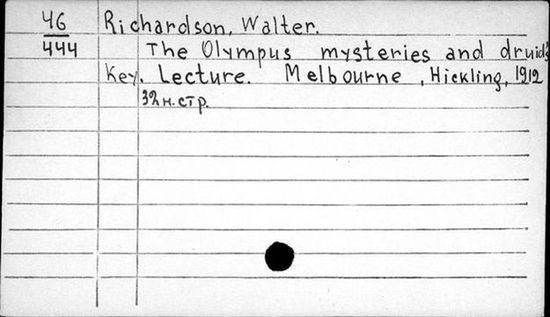 46
444
Richardson, Walter.
The Olympus mysteries and druid's
Key. Lecture. Melbourne, Hickling, 1912
32 н. стр.